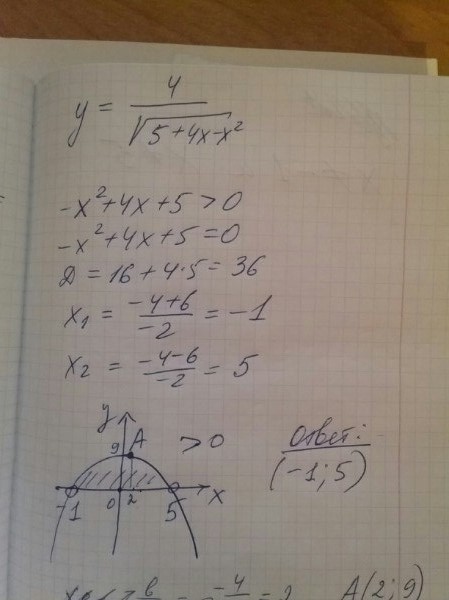 y = 4/√(5+4x-x²)
-x²+4x+5>0
-x²+4x+5=0
D=16+4·5=36
x₁ = (-4+6)/(-2) = -1
x₂ = (-4-6)/(-2) = 5
y
9 A >0
-1 0 2 5 x
Ответ:
(-1;5)
-4 = 2 A(2;9)